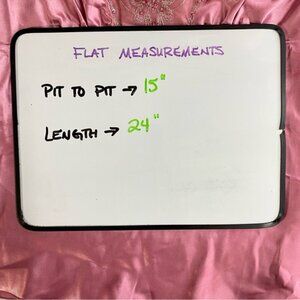 FLAT MEASUREMENTS
PIT TO PIT → 15"
LENGTH → 24"